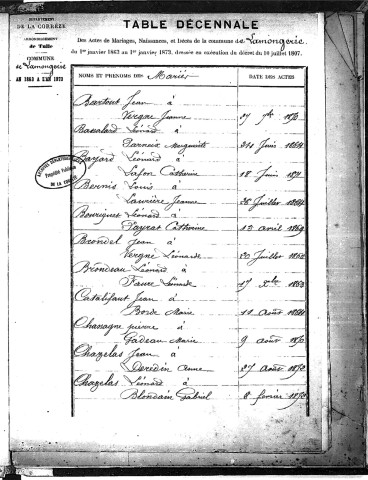 DÉPARTEMENT
DE LA CORRÈZE
ARRONDISSEMENT
de Tulle
COMMUNE
de Lamongerie
AN 1863 A L'AN 1873
TABLE DÉCENNALE
Des Actes de Mariages, Naissances, et Décès de la commune de Lamongerie
du 1er janvier 1863 au 1er janvier 1873, dressée en exécution du décret du 20 juillet 1807.
NOMS ET PRÉNOMS DES Mariés DATE DES ACTES
Bartout Jean à
Vergne Jeanne 27 7bre 1870
Léonard à
Marguerite Juin 1864
Bayard Léonard à
Lafon Catherine 18 Juin 1871
Bernis Louis à
Laurière Jeanne 28 Juillet 1864
Bouriquet Léonard à
Peyrat Catherine 13 avril 1869
Brondel Jean à
Vergne Léonarde 20 Juillet
Brondeau Léonard à
Faure Léonarde 17 Xbre 1863
Castalifaut Jean à
Borde Marie 10 Août
Chassagne pierre à
Gadeau Marie 9 août 1870
Chazelas Jean à
Anne 27 Août 1872
Chazelas Léonard à
Blondain Gabriel 8 fevrier 1872
Propriété Publique
DE LA CORRÈZE